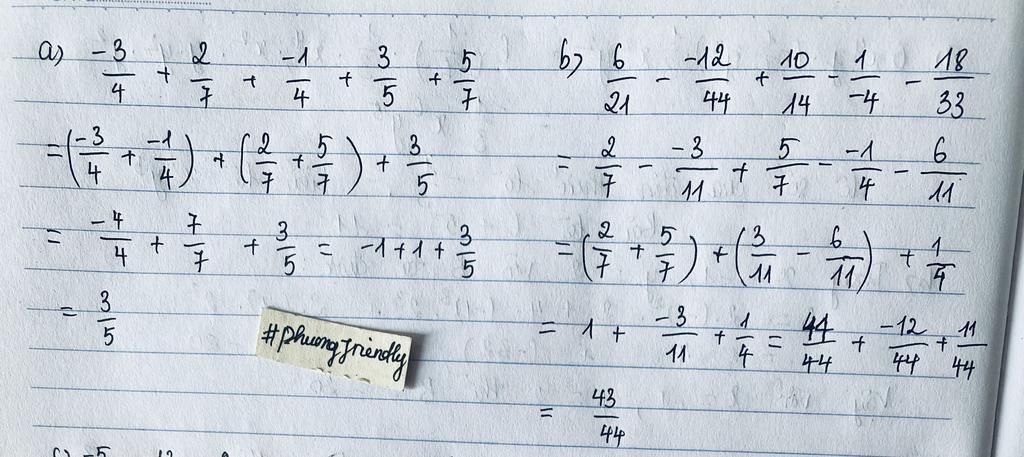 a) -3/4 + 2/7 + -1/4 + 3/5 + 5/7
= (-3/4 + -1/4) + (2/7 + 5/7) + 3/5
= -4/4 + 7/7 + 3/5 = -1 + 1 + 3/5
= 3/5
#phuongfriendly
b) 6/21 - -12/44 + 10/14 - 1/-4 - 18/33
= 2/7 - -3/11 + 5/7 - -1/4 - 6/11
= (2/7 + 5/7) + (3/11 - 6/11) + 1/4
= 1 + -3/11 + 1/4 = 44/44 + -12/44 + 11/44
= 43/44